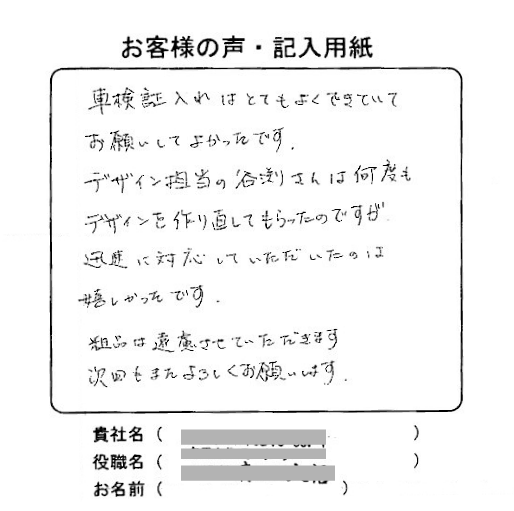 お客様の声・記入用紙
車検証入れはとてもよくできていて
お願いしてよかったです.
デザイン担当の谷渕さんは何度も
デザインを作り直してもらったのですが
迅速に対応していただいたのは
嬉しかったです.
粗品は遠慮させていただきます
次回もまたよろしくお願いします.
貴社名（ ）
役職名（ ）
お名前（ ）